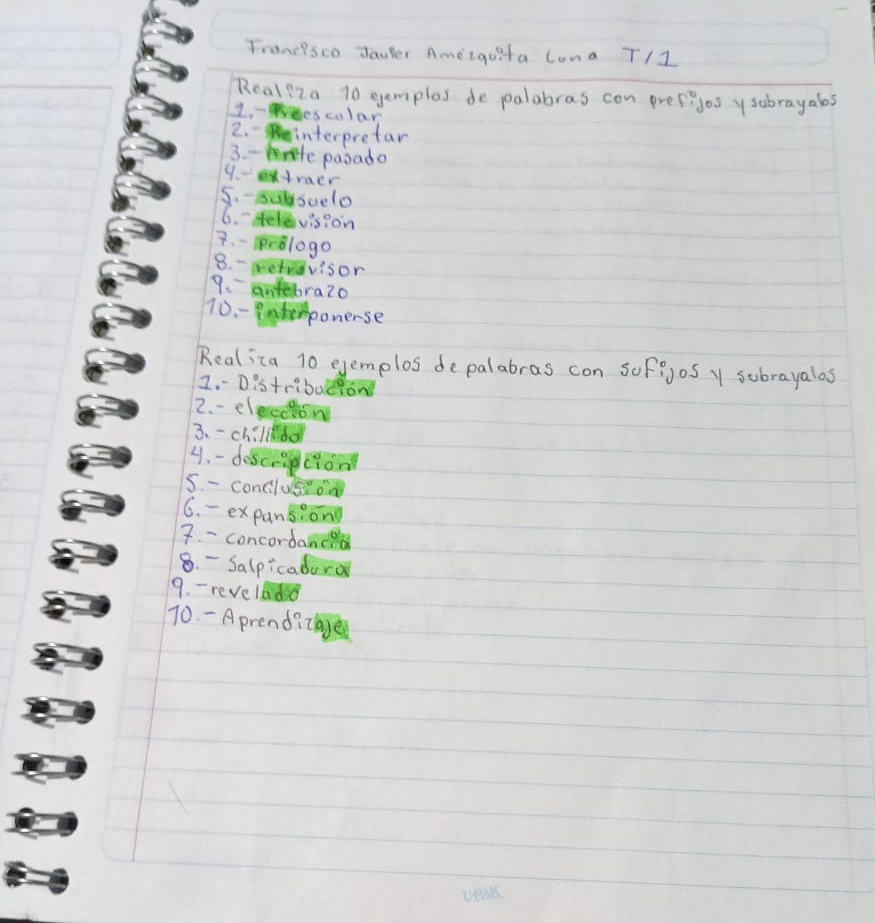 Francisco Javier Amézquita Luna T/1
Realiza 10 ejemplos de palabras con prefijos y subrayalos
1.- Preescolar
2.- Reinterpretar
3.- Antepasado
4.- extraer
5.- subsuelo
6.- television
7.- prólogo
8.- retrovisor
9.- antebrazo
10.- interponerse
Realiza 10 ejemplos de palabras con sufijos y subrayalos
1.- Distribución
2.- elección
3.- chillido
4.- descripción
5.- conclusión
6.- expansión
7.- concordancia
8.- Salpicadura
9.- revelado
10.- Aprendizaje